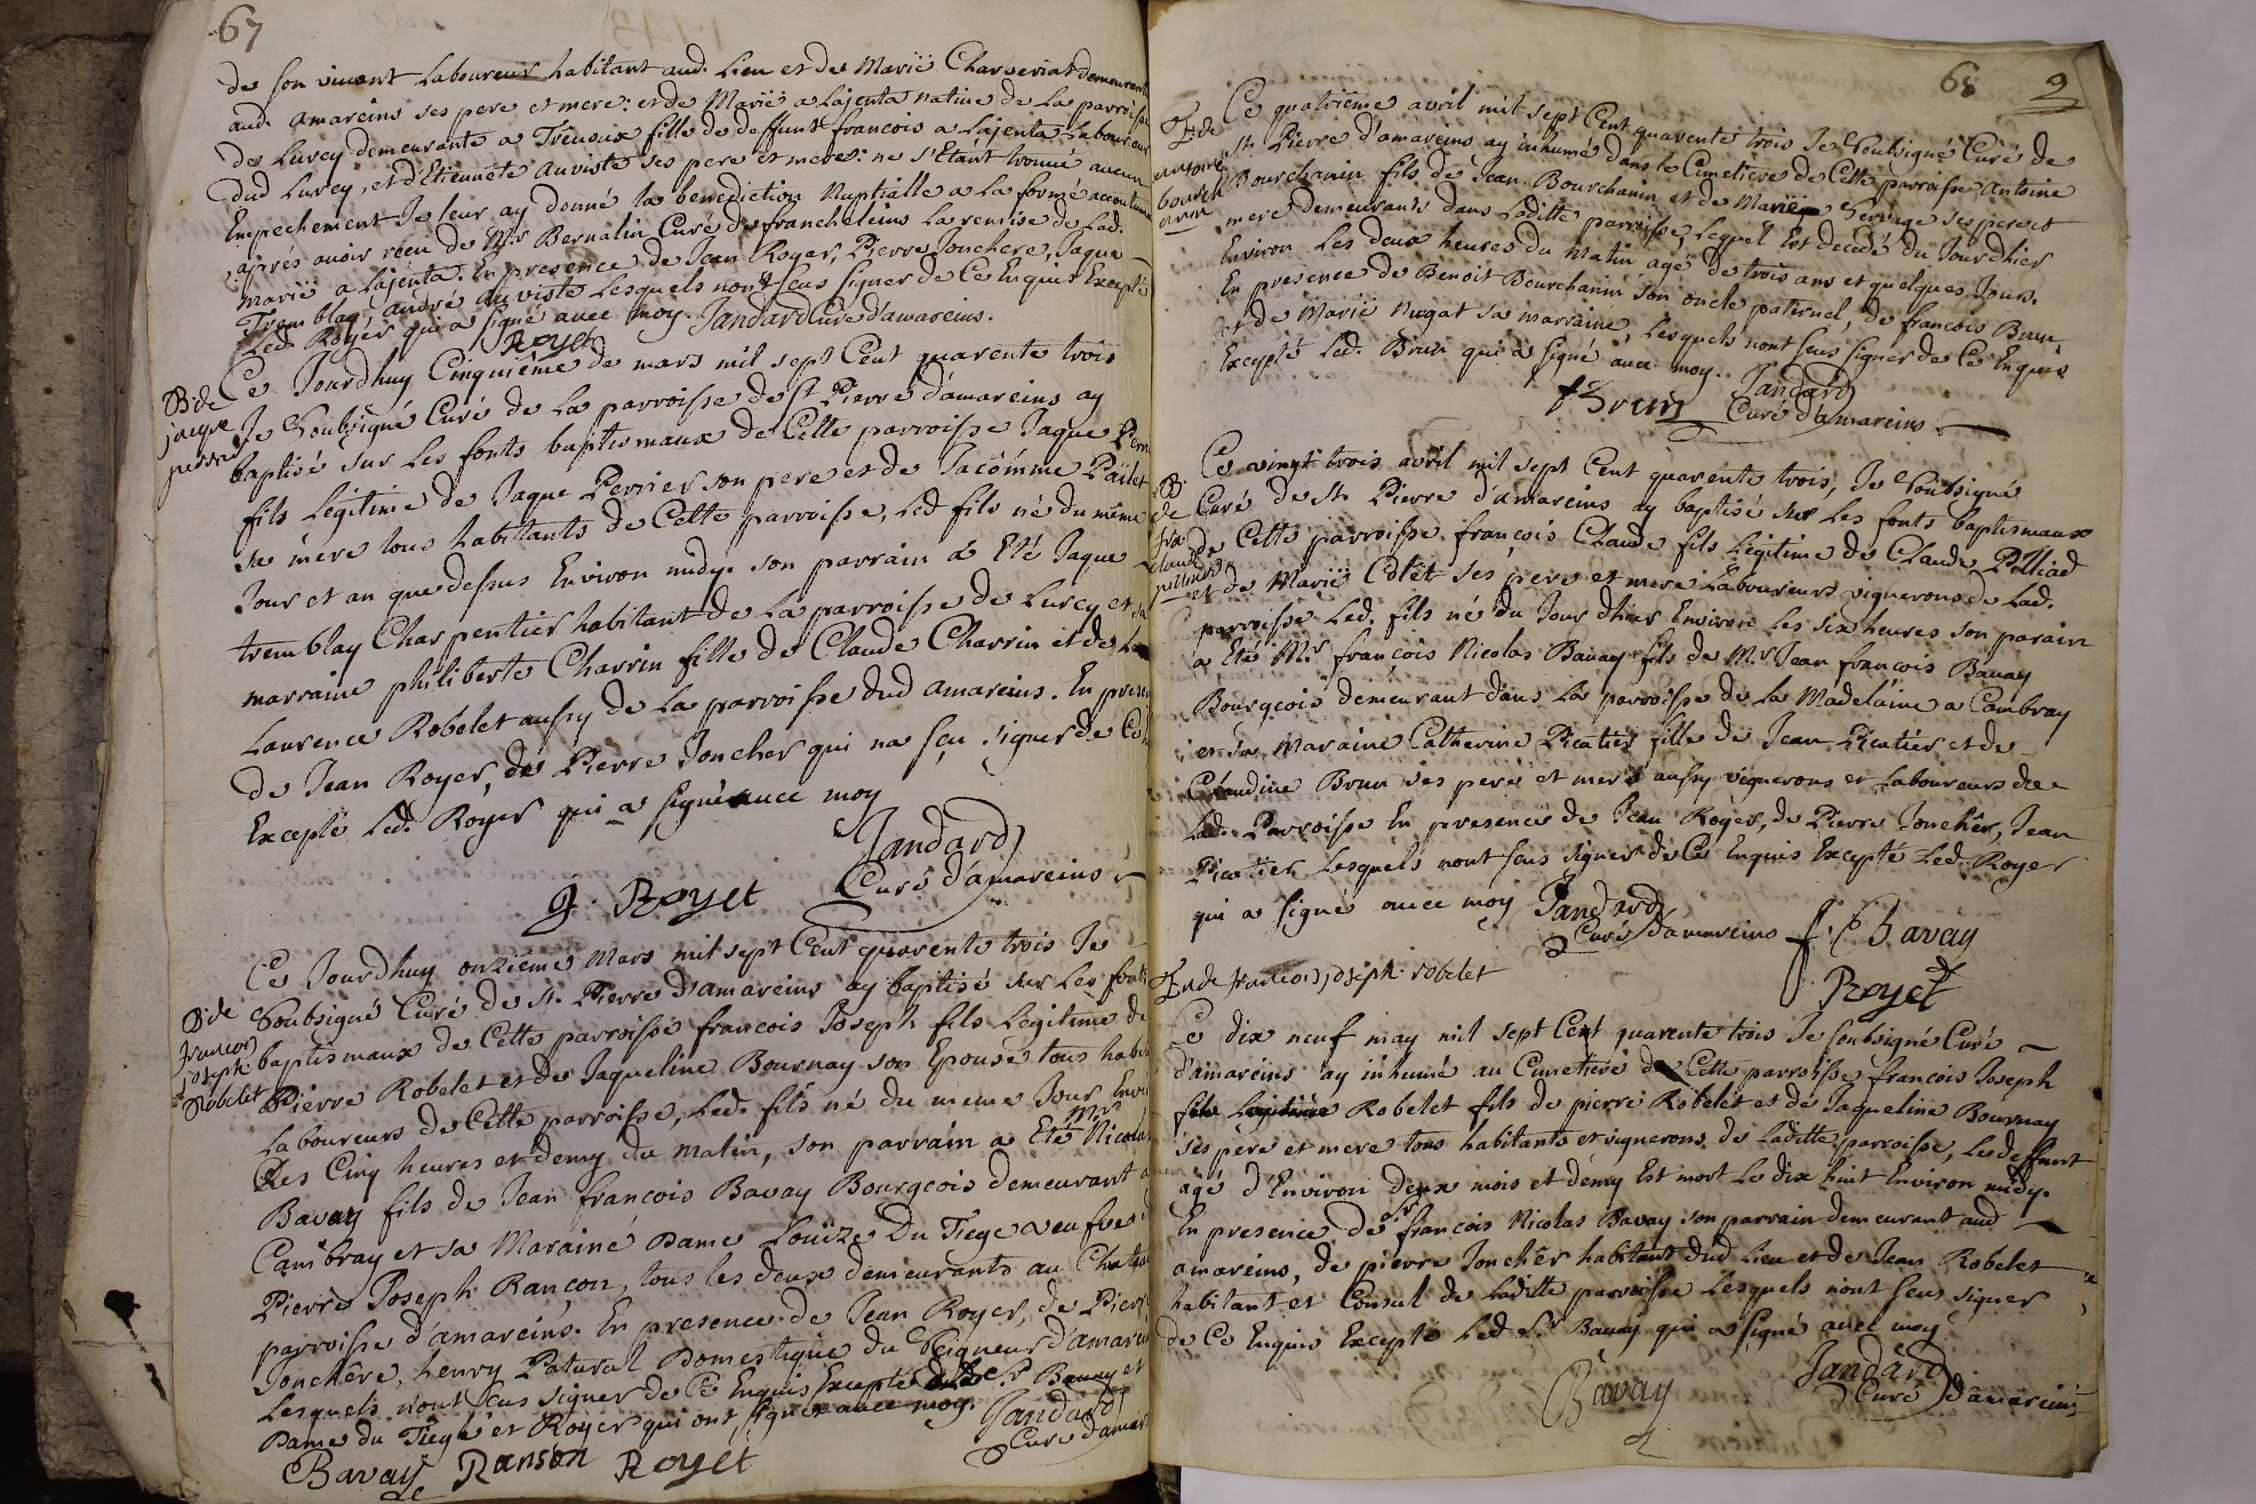 67
de son vivant Laboureur habitant aud. Lieu et de Marië Charveriat demeurant
aud. amareins ses pere et mere: et de Marië a Lajenta native de La parroisse
de Lurcy demeurante a Trevoux fille de deffunt francois a Lajenta Laboureur
dud Lurcy, et d'Etiennete auviste ses pere et mere: ne s'Etánt trouvé aucun
Empechement Je leur ay donné la benediction Nuptialle a La forme accoutumé
aprés avoir receu de Mr Bernalin Curé de francheleins La remise de Lad.
marië a Lajenta. En presence de Jean Royer, Pierre Jonchere, Jaque
Tremblay, andré auviste Lesquels nont sceus signer de Ce Enquis Excepté
Led. Royer qui a signé avec moy. Jandard Curé d'amareins.
Royet
B. de
jaque
perrier
Ce Jourdhuy Cinquiême de mars mil sept Cent quarente trois
Je Soubsigné Curé de La parroisse de St Pierre d'amareins ay
baptisé sur Les fonts baptismaux de Cette parroisse Jaque
fils Légitime de Jaque Perrier son pere et de Jacômme Païlet
sa mere tous habitants de Cette parroisse, Led fils né du même
Jour et an que dessus Environ midy. son parrain a Eté Jaque
tremblay Charpentier habitant de La parroisse de Lurcy et sa
marraine philiberte Charrin fille de Claude Charrin et de
Laurence Robelet aussy de La parroisse dud amareins. En
de Jean Royer, de Pierre Joncher qui na sçu signer de Ce
Excepté Led. Royer qui a signé avec moy
Jandard
Curé d'amareins
J. Royet
B. de
francois
joseph
Robelet
Ce Jourdhuy onziême Mars mil sept Cent quarente trois Je
Soubsigné Curé de St. Pierre d'amareins ay baptisé sur Les fonts
baptismaux de Cette parroisse francois Joseph fils Légitime de
Pierre Robelet et de Jaqueline Bournay son Epouse tous
Laboureurs de Cette parroisse, Led. fils né du meme Jour
Les Cinq heures et demy du matin, son parrain a Eté Mr Nicolas
Bavay fils de Jean françois Bavay Bourgeois demeurant a
Cambray et sa Maraine Dame Louïze Du Tiege veufve
Pierre Joseph Rancon, tous les deux demeurants au
parroisse d'amareins. En presence de Jean Royer, de
Jonchêre, henry Patural Domestique du Seigneur
Lesquels n'ont sceus signer de Ce Enquis Excepté Sr Bavay et
Dame du Tiege et Royer qui ont signer avec moy. Jandard
Curé
Bavay Ranson Royet
68 9
E. de
antoine
bourch
anin
Ce quatriême avril mil sept Cent quarente trois Je Soubsigné Curé de
St. Pierre d'amareins ay inhumé dans le Cimetiere de Cette parroisse Antoine
Bourchanin fils de Jean Bourchanin et de Marië Servage ses pere et
mere demeurants dans Laditte parroisse, Lequel Est decedé du Jourdhier
Environ Les deux heures du Matin agé de trois ans et quelques Jours.
En presence de Benoit Bourchanin son oncle paternel, de francois Brun
et de Marië Nugat sa marraine, Lesquels nont sceus signer de Ce Enquis
Excepté Led. Brun qui a signé avec moy. Jandard
f Brun Curé d'amareins
B.
de
fra
claude
Ce vingt trois avril mil sept Cent quarente trois, Je Soubsigné
Curé de St. Pierre d'amareins ay baptisé sur Les fonts baptismaux
de Cette parroisse françois Claude fils Légitime de Claude Polliad
et de Marië Colêt ses pere et mere Laboureurs vignerons de Lad.
parroisse Led. fils né du Jour dhier Environ Les six heures son parain
a Eté Mr françois Nicolas Bavay fils de Mr Jean francois Bavay
Bourgeois demeurant dans La parroisse de La Madelaine a Cambray
et sa Maraine Catherine Picatier fille de Jean Picatier et de
Claudine Brun ses pere et mere aussy vignerons et Laboureurs de
Lad. Parroisse En presence de Jean Royer, de Pierre Jonchêr, Jean
Picatier Lesquels nont sceus signer de Ce Enquis Excepté Led. Royer
qui a signé avec moy Jandard
Curé d'amareins f. Bavay
Royet
E de francois joseph robelet
Ce dix neuf may mil sept Cent quarente trois Je soubsigné Curé
d'amareins ay inhumé au Cimetiere de Cette parroisse francois Joseph
fils Légitime Robelet fils de pierre Robelet et de Jaqueline Bournay
ses pere et mere tous habitants et vignerons de Laditte parroisse, Le deffunt
agé d'Environ deux mois et demy Est mort Le dix huit Environ midy.
En presence de Sr francois Nicolas Bavay son parrain demeurant aud
amareins, de pierre Jonchêr habitant dud Lieu et de Jean Robelet
habitant et Consul de Laditte parroisse Lesquels nont sceus signer
de Ce Enquis Excepté Led Sr Bavay qui a signé avec moy
Bavay Jandard
Curé d'amareins